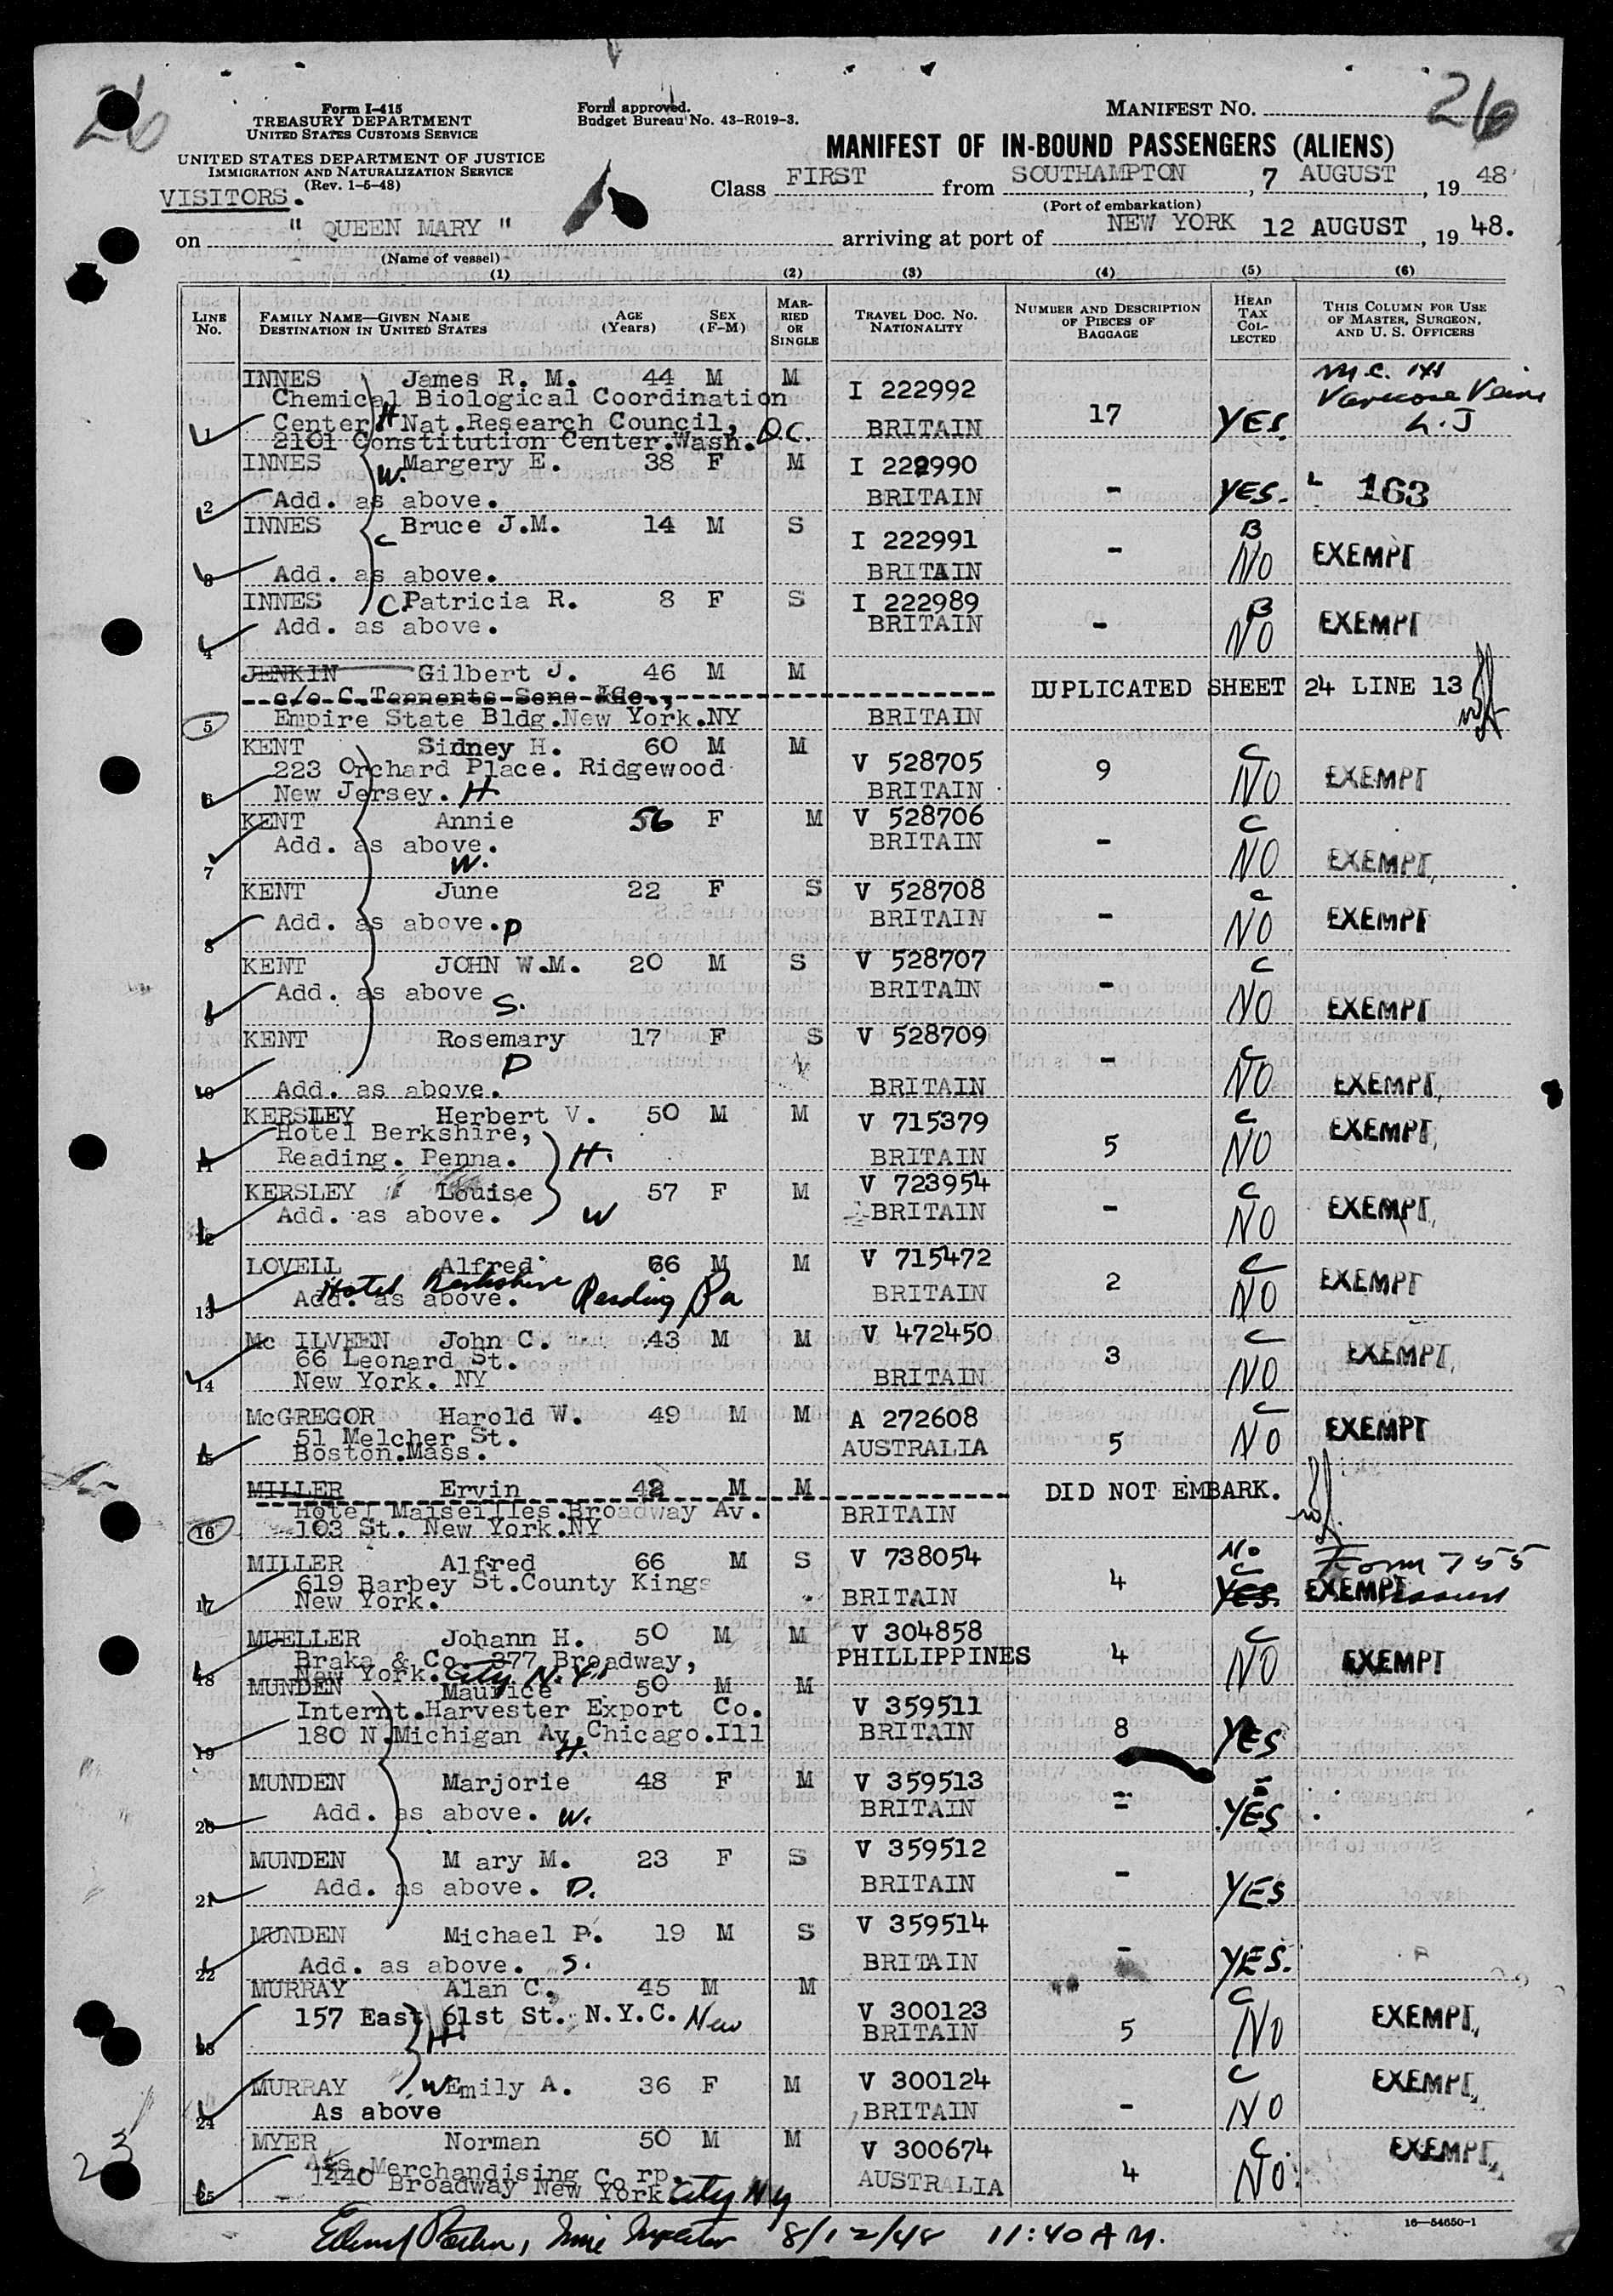 26
26
Form I-415
TREASURY DEPARTMENT
UNITED STATES CUSTOMS SERVICE
UNITED STATES DEPARTMENT OF JUSTICE
IMMIGRATION AND NATURALIZATION SERVICE
(Rev. 1-5-48)
VISITORS.
Form approved.
Budget Bureau No. 43-R019-3.
MANIFEST NO.
MANIFEST OF IN-BOUND PASSENGERS (ALIENS)
Class FIRST from SOUTHAMPTON, 7 AUGUST, 19 48
(Port of embarkation)
on " QUEEN MARY " arriving at port of NEW YORK 12 AUGUST, 19 48.
(Name of vessel)
(1) (2) (3) (4) (5) (6)
LINE No. FAMILY NAME—GIVEN NAME DESTINATION IN UNITED STATES AGE (Years) SEX (F-M) MARRIED OR SINGLE TRAVEL DOC. No. NATIONALITY NUMBER AND DESCRIPTION OF PIECES OF BAGGAGE HEAD TAX COLLECTED THIS COLUMN FOR USE OF MASTER, SURGEON, AND U. S. OFFICERS
INNES James R. M. 44 M M I 222992 M.C. Varicose Veins
Chemical Biological Coordination
Center H Nat.Research Council, BRITAIN 17 YES. L.J
1 2101 Constitution Center.Wash. D.C.
INNES W. Margery E. 38 F M I 222990
2 Add. as above. BRITAIN - YES. 163
INNES C Bruce J.M. 14 M S I 222991 B
3 Add. as above. BRITAIN - NO EXEMPT
INNES C. Patricia R. 8 F S I 222989 B
4 Add. as above. BRITAIN - NO EXEMPT
JENKIN Gilbert J. 46 M M
c/o C.Tennents Sons &Co., DUPLICATED SHEET 24 LINE 13
5 Empire State Bldg.New York.NY BRITAIN
KENT Sidney H. 60 M M V 528705 9 C
223 Orchard Place. Ridgewood
6 New Jersey. H BRITAIN NO EXEMPT
KENT Annie 56 F M V 528706 C
7 Add. as above. W. BRITAIN - NO EXEMPT
KENT June 22 F S V 528708 C
8 Add. as above. D BRITAIN - NO EXEMPT
KENT JOHN W.M. 20 M S V 528707 C
9 Add. as above S. BRITAIN - NO EXEMPT
KENT Rosemary 17 F S V 528709 C
10 Add. as above. D BRITAIN - NO EXEMPT
KERSLEY Herbert V. 50 M M V 715379 C EXEMPT
Hotel Berkshire,
11 Reading. Penna. H. BRITAIN 5 NO
KERSLEY Louise 57 F M V 723954 C
12 Add. as above. W BRITAIN - NO EXEMPT
LOVELL Alfred 66 M M V 715472 C
Hotel Berkshire Reading Pa
13 Add. as above. BRITAIN 2 NO EXEMPT
Mc ILVEEN John C. 43 M M V 472450 C
66 Leonard St. 3 EXEMPT
14 New York. NY BRITAIN NO
McGREGOR Harold W. 49 M M A 272608 C EXEMPT
51 Melcher St.
15 Boston.Mass. AUSTRALIA 5 NO
MILLER Ervin 42 M M DID NOT EMBARK.
Hotel Marseilles.Broadway Av. BRITAIN
16 103 St. New York.NY
MILLER Alfred 66 M S V 738054 No C Form 755
619 Barbey St.County Kings 4
17 New York. BRITAIN YES. EXEMPT issued
MUELLER Johann H. 50 M M V 304858 C
Braka & Co. 377 Broadway, PHILLIPPINES 4 NO EXEMPT
18 New York. City N.Y.
MUNDEN Maurice 50 M M V 359511
Internt.Harvester Export Co.
19 180 N.Michigan Av.Chicago.Ill H. BRITAIN 8 YES
MUNDEN Marjorie 48 F M V 359513
20 Add. as above. W. BRITAIN - YES
MUNDEN M ary M. 23 F S V 359512
21 Add. as above. D. BRITAIN - YES
MUNDEN Michael P. 19 M S V 359514
22 Add. as above. S. BRITAIN - YES.
MURRAY Alan C. 45 M M C
157 East 61st St. N.Y.C. New V 300123 EXEMPT
23 H. BRITAIN 5 NO
MURRAY W Emily A. 36 F M V 300124 C EXEMPT
24 As above BRITAIN - NO
MYER Norman 50 M M V 300674 C. EXEMPT
Merchandising Co rp.
25 1440 Broadway New York City NY AUSTRALIA 4 NO.
23
8/12/48 11:40 AM.
16—54650-1